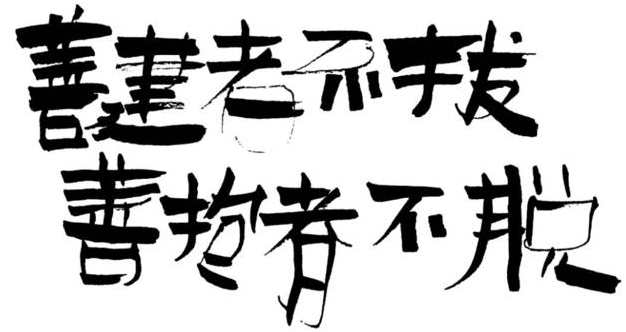 善建者不拔
善抱者不脱